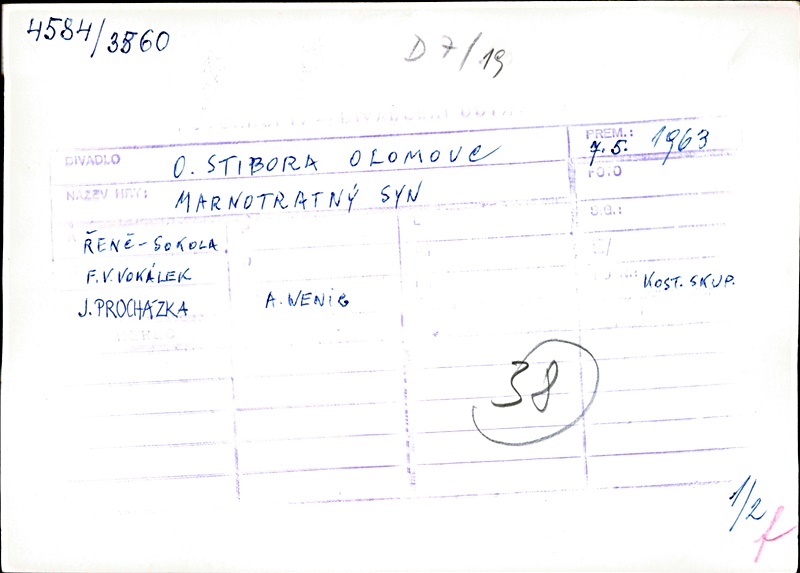 4584/3560
D 7/19
DIVADLO O. STIBORA OLOMOUC
PREM.: 7.5. 1963
NÁZEV HRY: MARNOTRATNÝ SYN
FO.O
S.G.:
ŘENČ-SOKOLA
F.V.VOKÁLEK
KOST. SKUP.
J. PROCHÁZKA A. WENIG
38
1/2